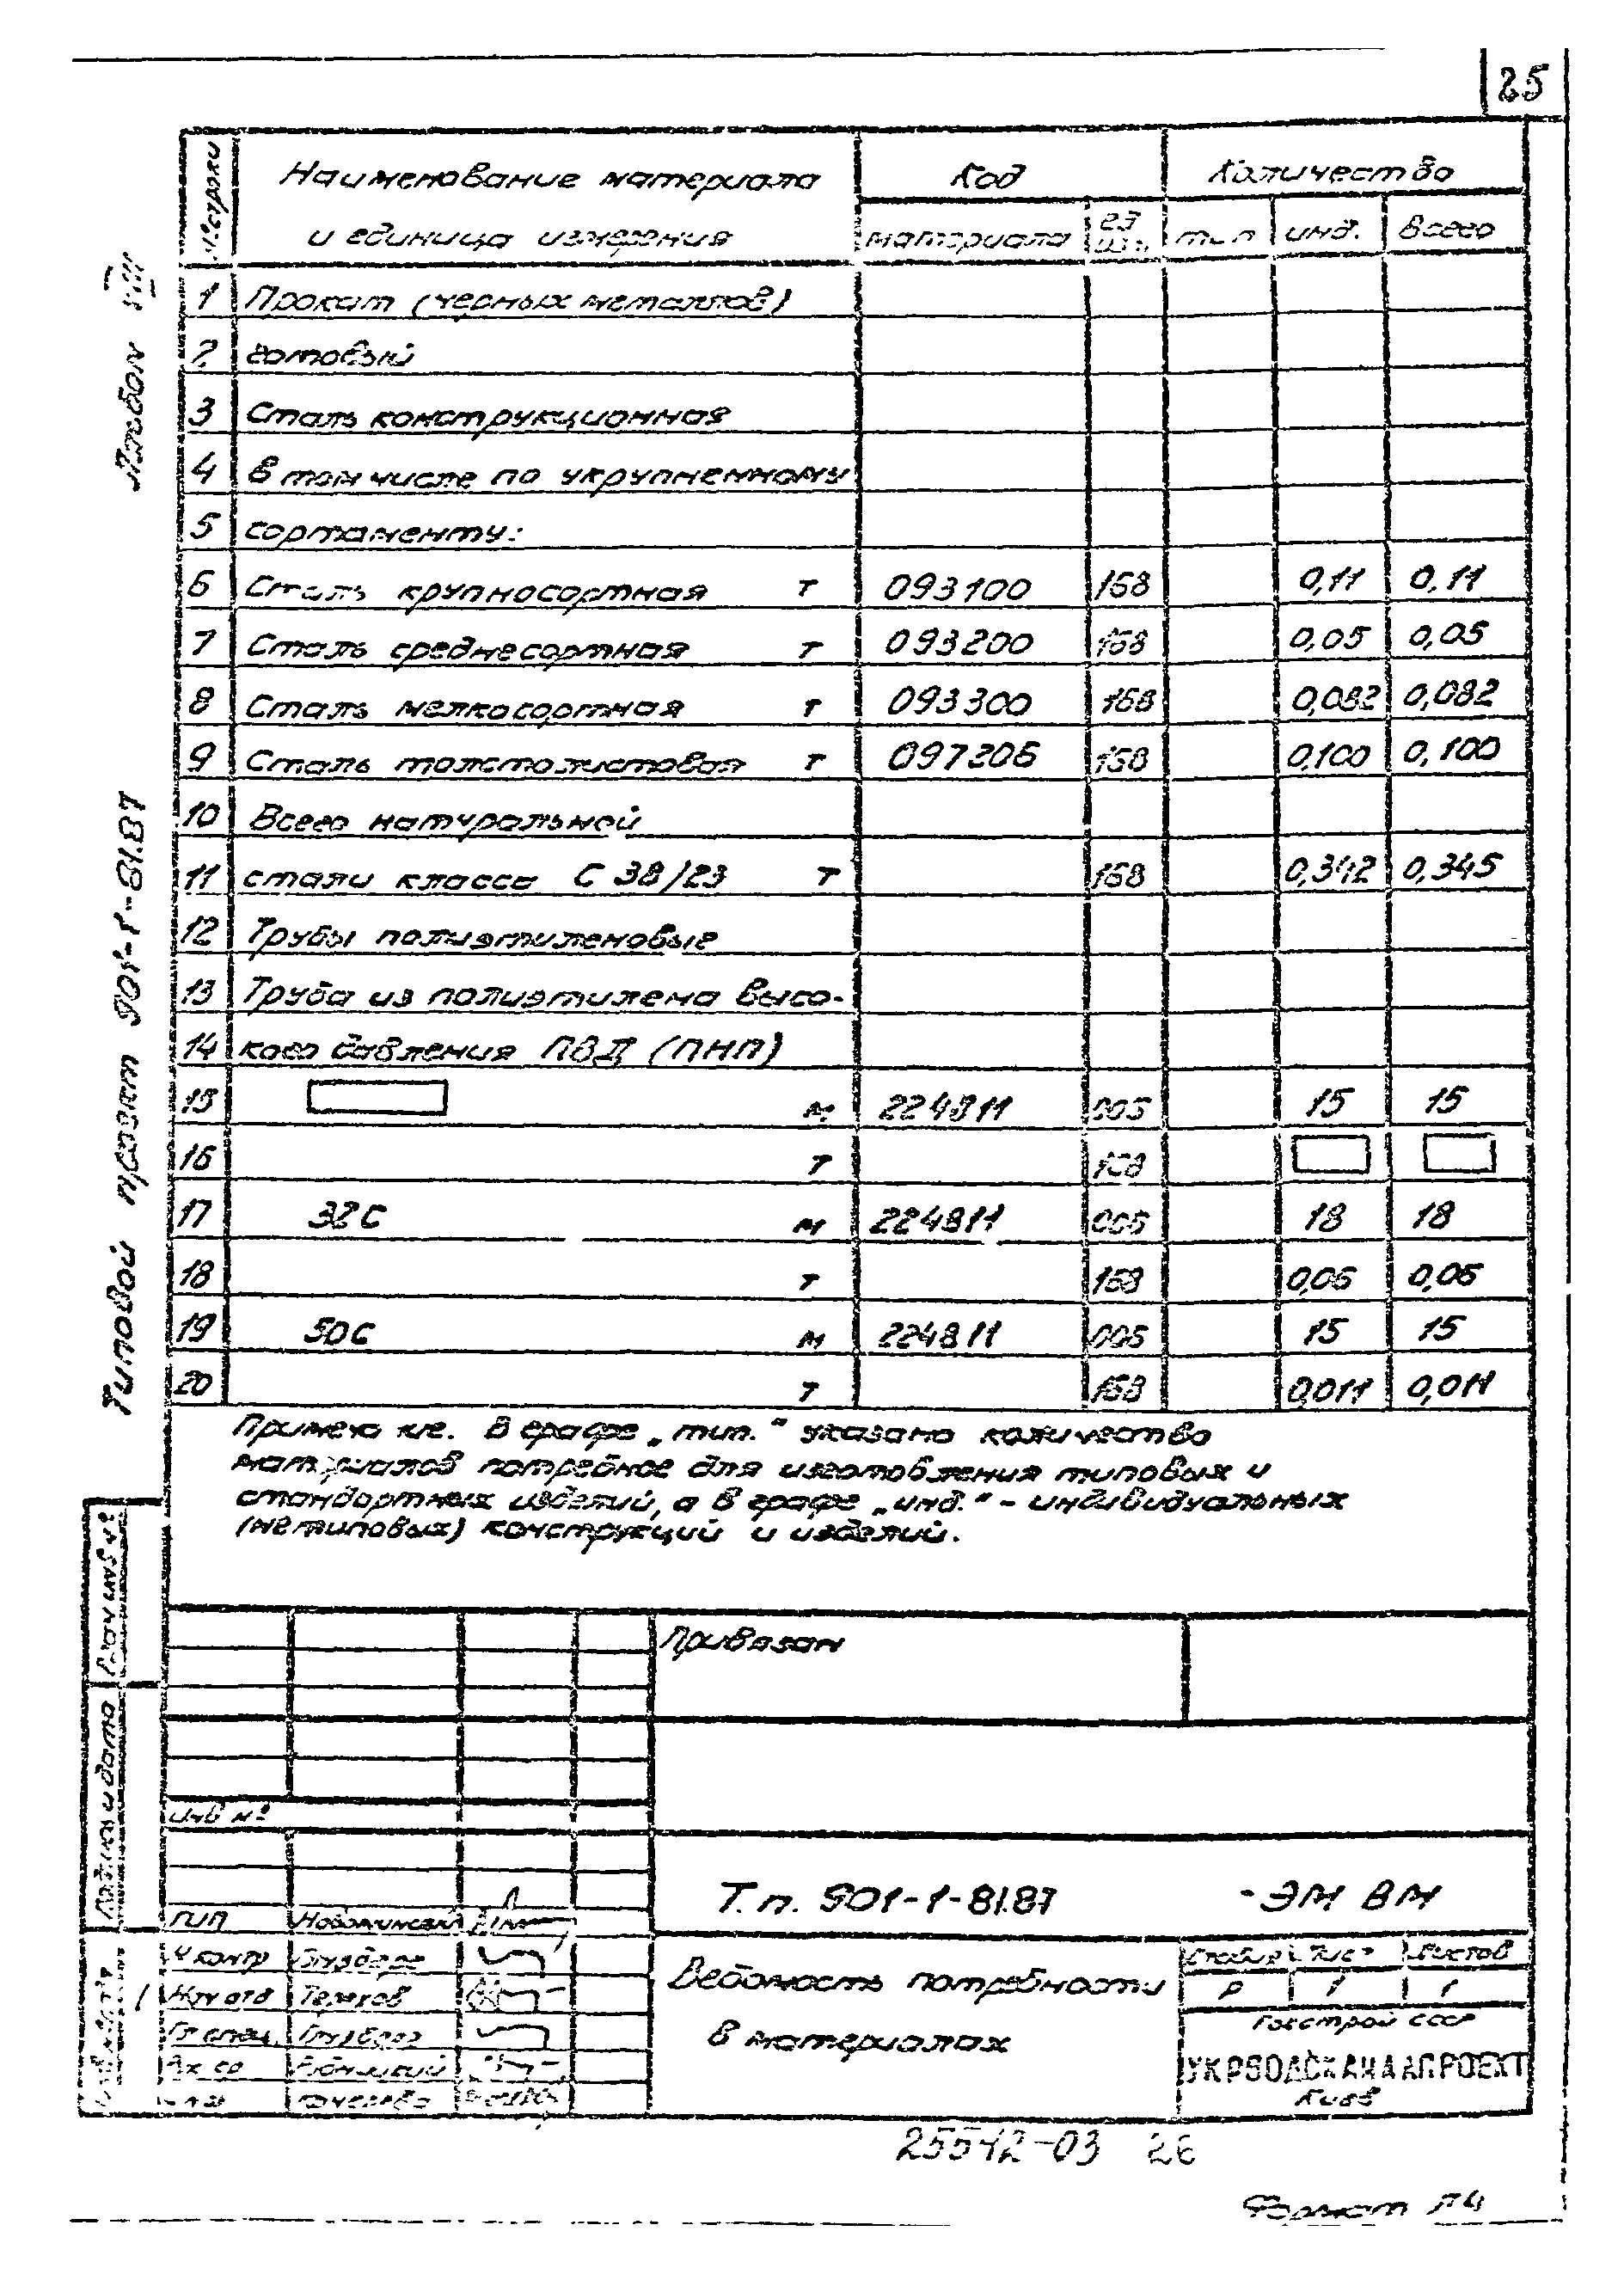 25
№ строки
Наименование материала
и единица измерения
Код
Количество
материала
ед
изм
тип
инд.
всего
1 Прокат (черных металлов)
2 готовый
3 Сталь конструкционная
4 в том числе по укрупненному
5 сортаменту:
6 Сталь крупносортная т 093100 168 0,11 0,11
7 Сталь среднесортная т 093200 168 0,05 0,05
8 Сталь мелкосортная т 093300 168 0,082 0,082
9 Сталь толстолистовая т 097205 168 0,100 0,100
10 Всего натуральной
11 стали класса С 38/23 т 168 0,342 0,345
12 Трубы полиэтиленовые
13 Труба из полиэтилена высо-
14 кого давления ПВД (ПНП)
15 м 224811 006 15 15
16 т 168
17 32С м 224811 006 18 18
18 т 168 0,06 0,06
19 50С м 224811 006 15 15
20 т 168 0,011 0,011
Примечание. В графе „тип." указано количество
материалов потребное для изготовления типовых и
стандартных изделий, а в графе „инд." - индивидуальных
(нетиповых) конструкций и изделий.
Альбом VIII
Типовой проект 901-1-81.87
Подпись и дата
Привязан
Инв №
Т.п. 901-1-81.87 -ЭМ ВМ
ГИП
Н контр
Нач отд Терехов
Гл спец.
Ведомость потребности
в материалах
Стадия Лист Листов
Р 1 1
Госстрой СССР
УКРВОДОКАНАЛПРОЕКТ
Киев
25542-03 26
Формат А4